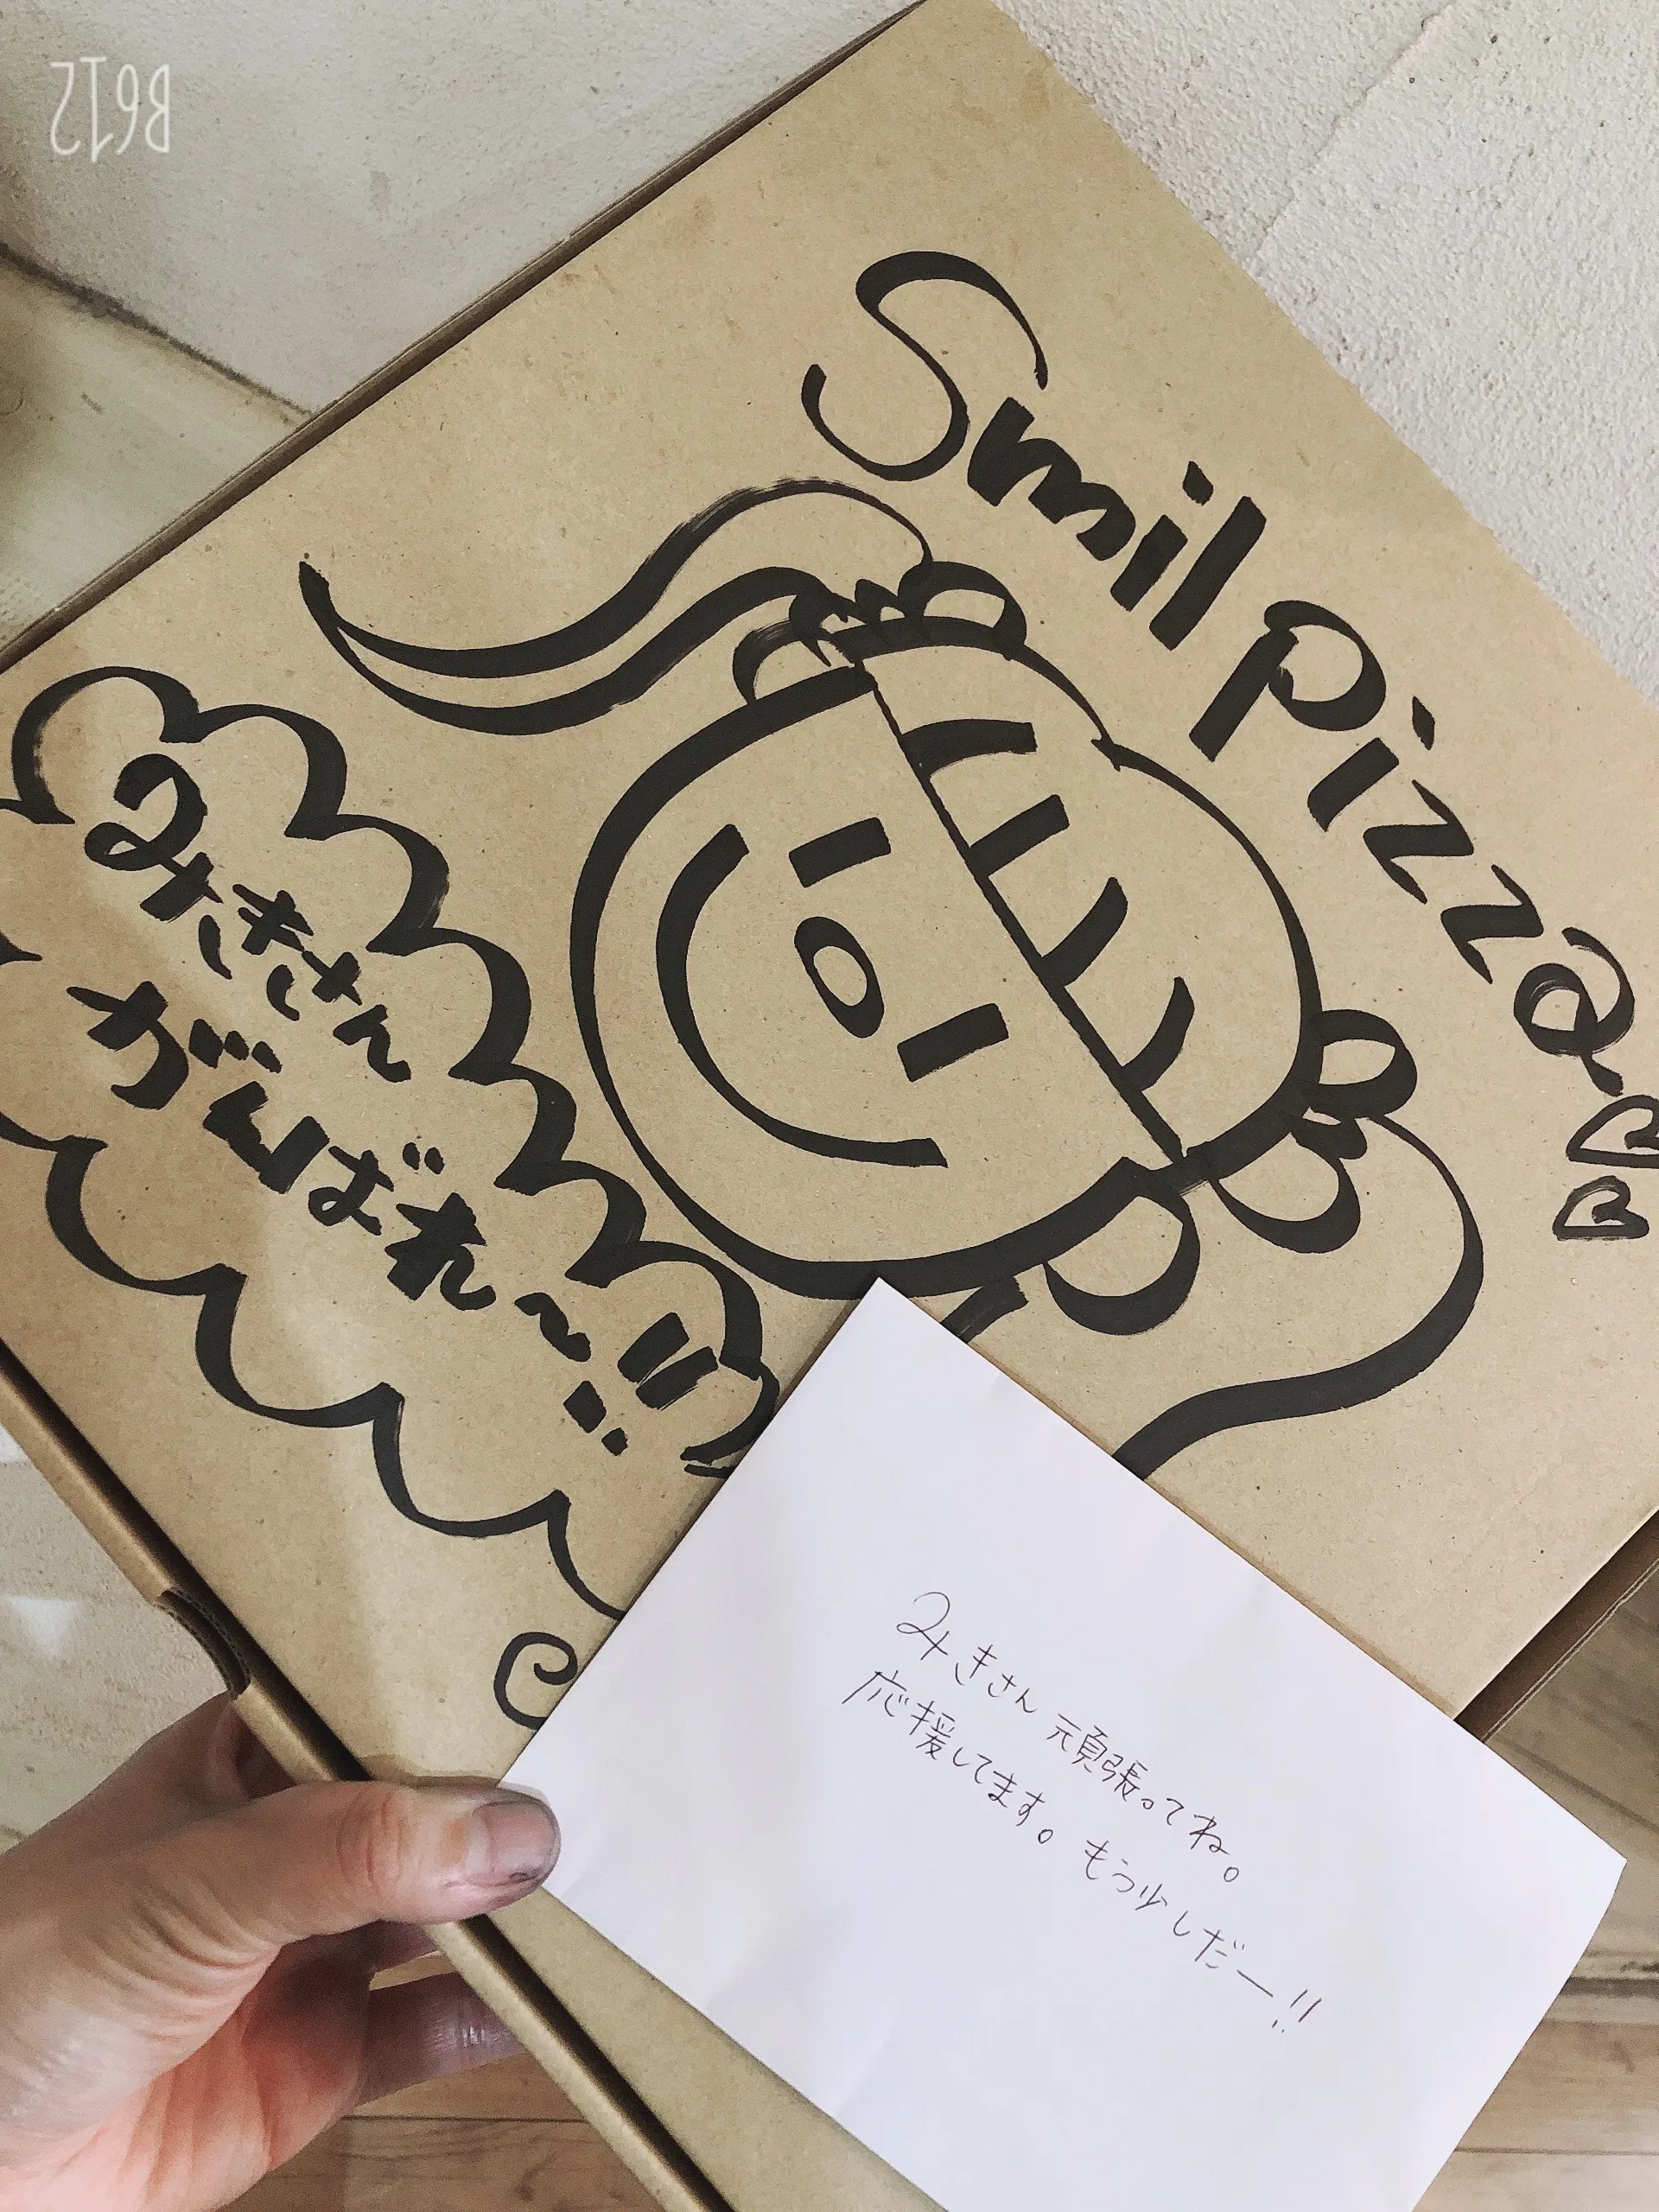 B612
Smil Pizza
みきさん
がんばれ〜!!
みきさん 頑張ってね。
応援してます。もう少しだー!!